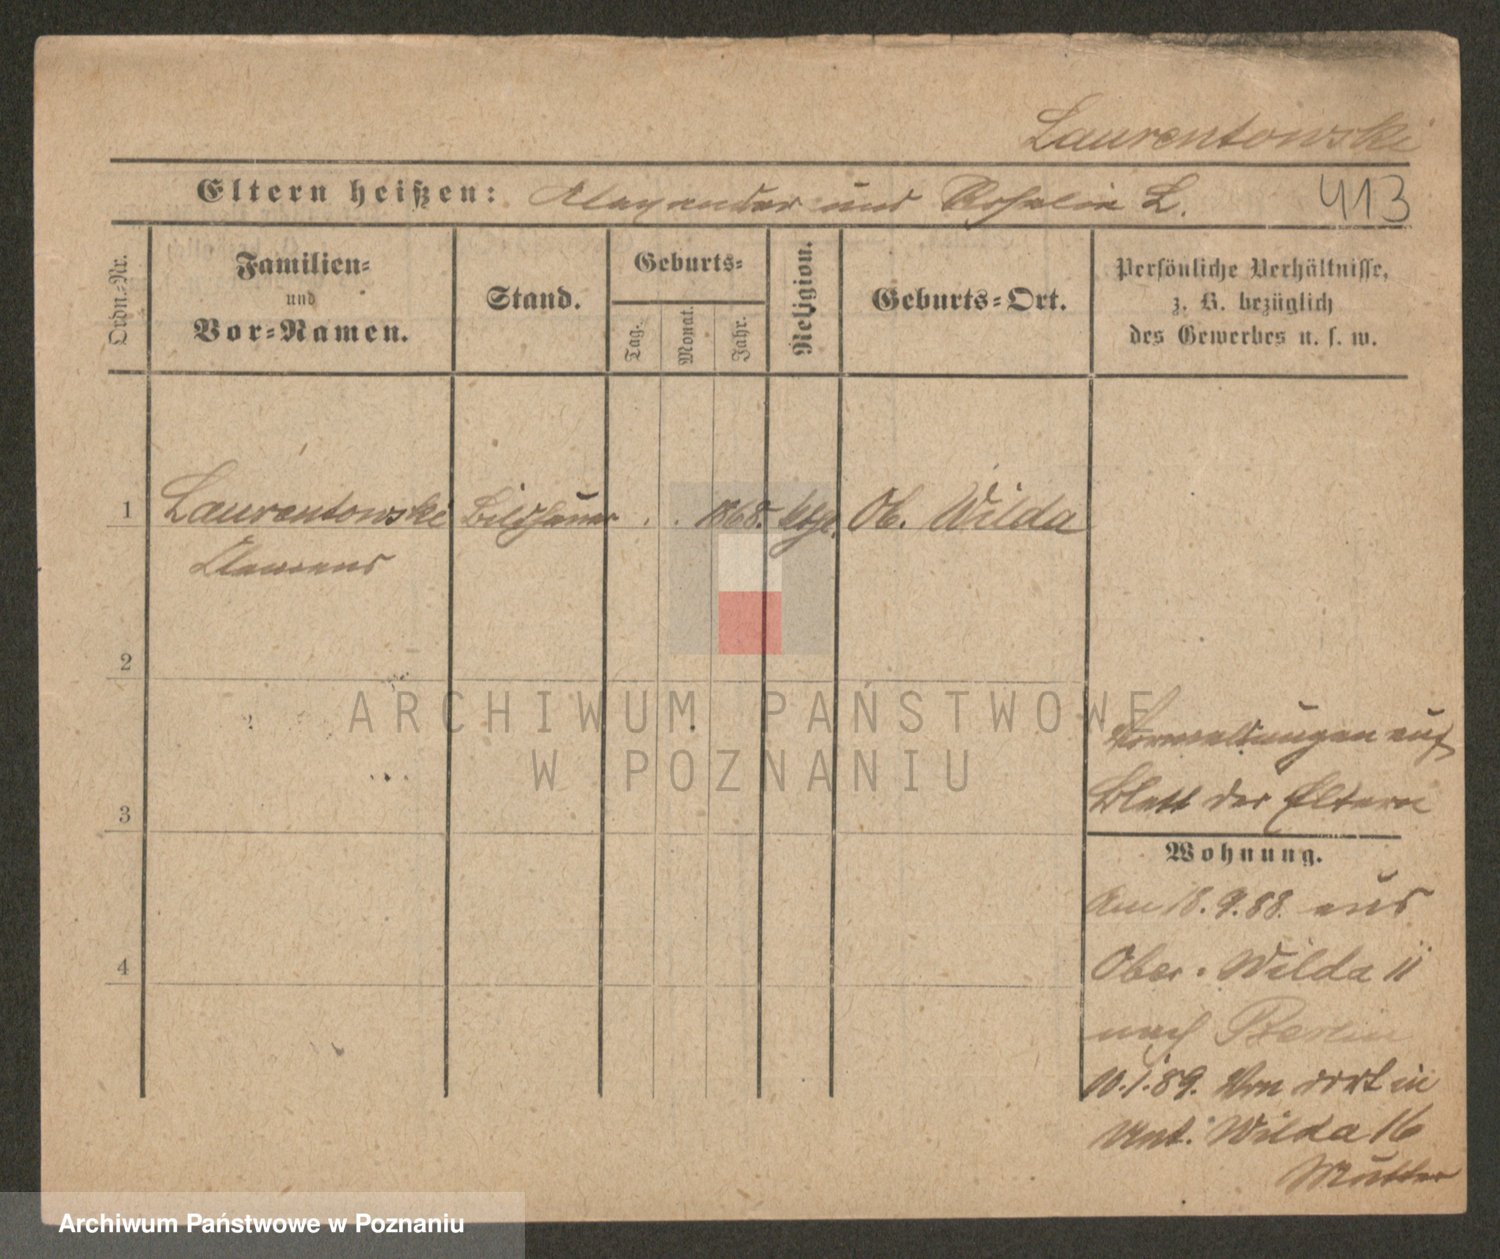 Laurentowski
Eltern heißen: Alexander und Rosalie L.
413
Ordn.-Nr.
Familien-
und
Vor-Namen.
Stand.
Geburts-
Tag.
Monat.
Jahr.
Religion.
Geburts-Ort.
Persönliche Verhältnisse,
z. B. bezüglich
des Gewerbes u. s. w.
1
Laurentowski
Bildhauer
. . 1868.
kath.
Ob. Wilda
Clemens
2
3
4
auf
Blatt der Eltern
Wohnung.
Am 18.9.88. aus
Ober-Wilda 11
nach Berlin
10.1.89. Von dort in
Unt. Wilda 16
Mutter
ARCHIWUM PAŃSTWOWE
W POZNANIU
Archiwum Państwowe w Poznaniu